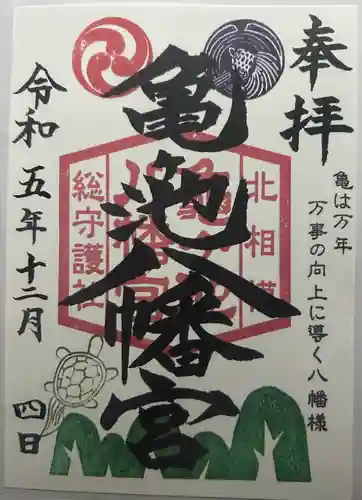 奉拝
亀は万年
万事の向上に導く八幡様
亀池八幡宮
北相模
亀乃池
八幡宮
総守護社
令和五年十二月四日